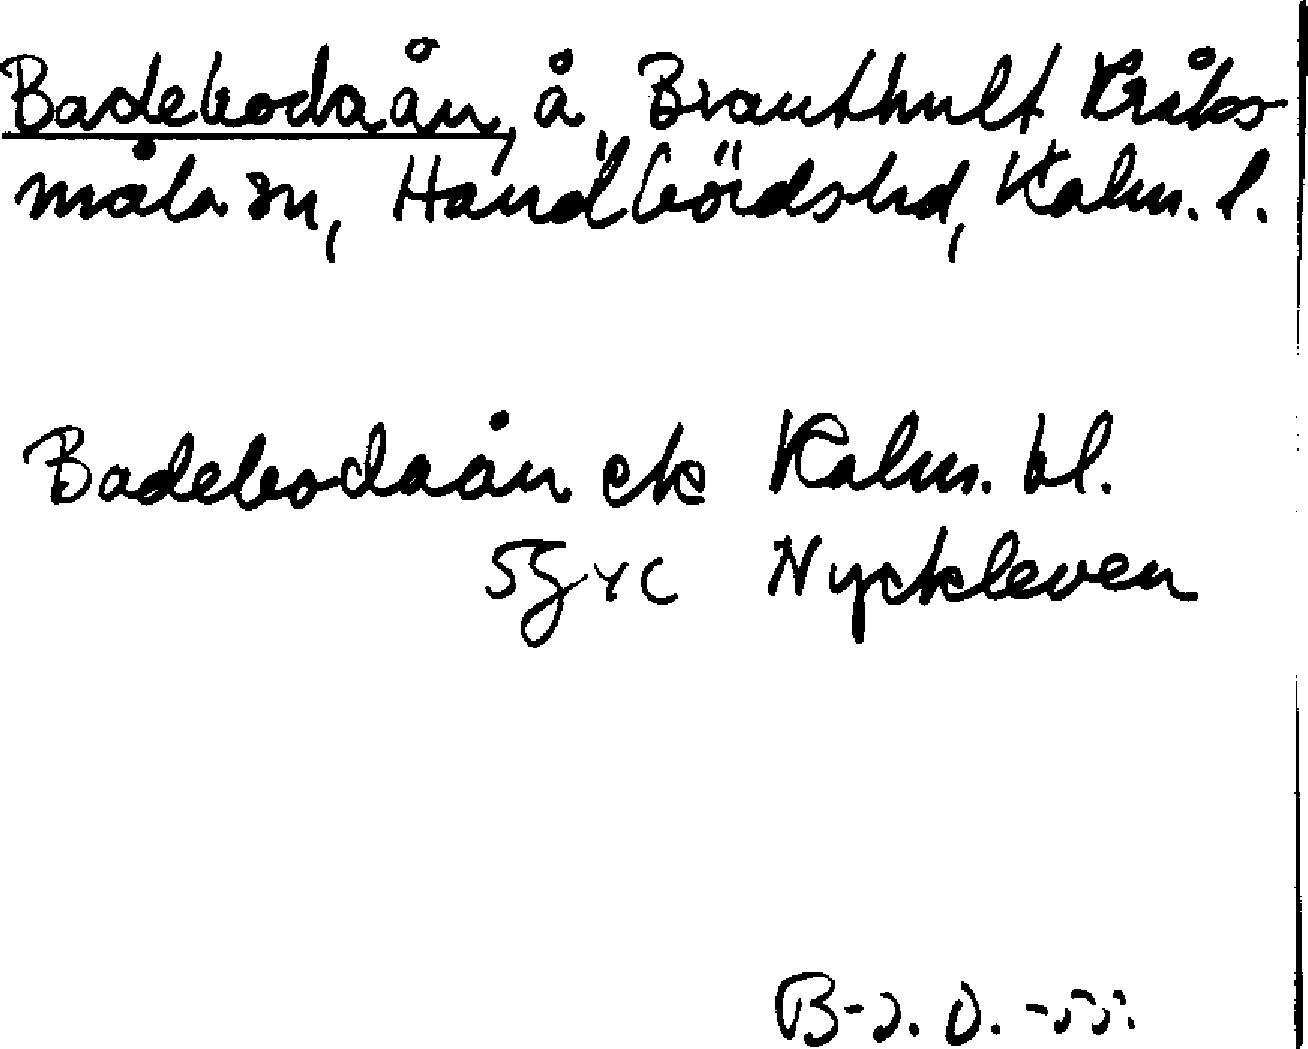 Badebodaån, å, Brauthult Kråks-
måla sn, Handbördshd, Kalm. l.
Badebodaån ek Kalm. bl.
5G YC Nyckleven
B-a. O. -55.